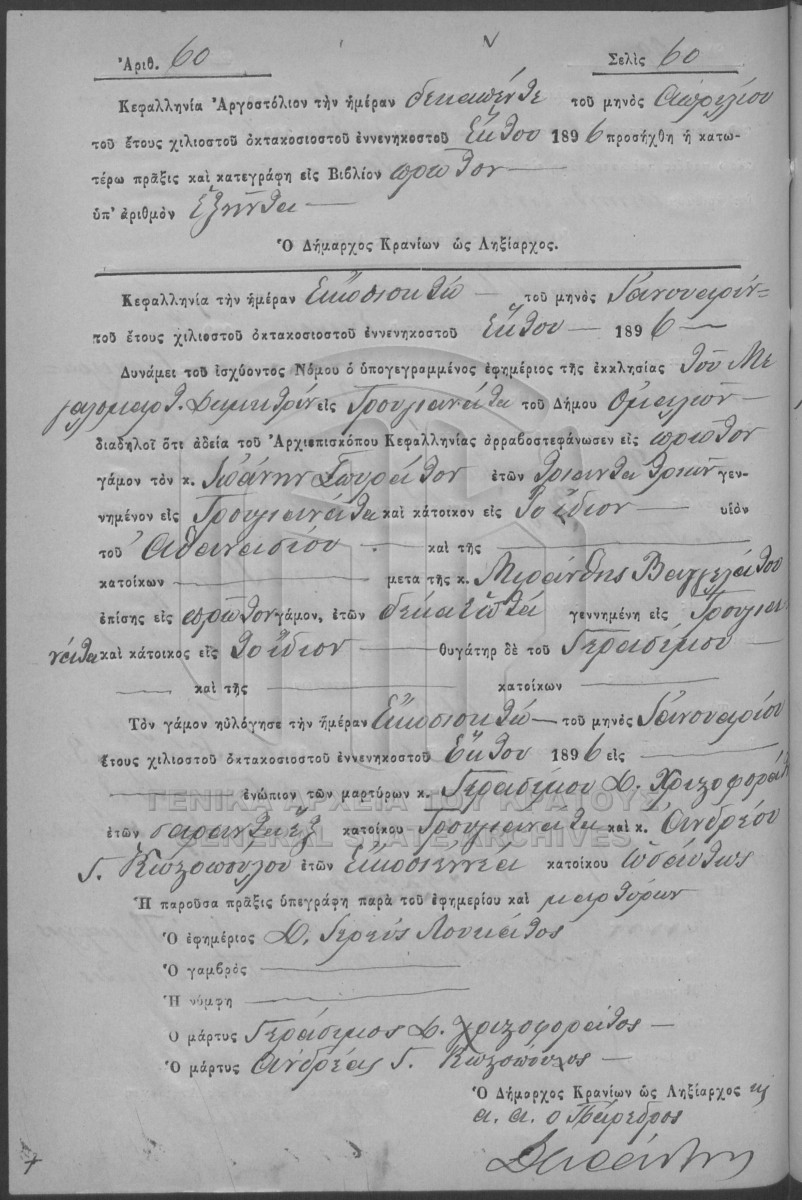 Ἀριθ. 60 Σελὶς 60
Κεφαλληνία Ἀργοστόλιον τὴν ἡμέραν δεκαπέντε τοῦ μηνὸς Ἀπριλίου
τοῦ ἔτους χιλιοστοῦ ὀκτακοσιοστοῦ ἐννενηκοστοῦ Ἕκτου 1896 προσήχθη ἡ κατω-
τέρω πρᾶξις καὶ κατεγράφη εἰς Βιβλίον πρῶτον
ὑπ' ἀριθμὸν Ἑξῆντα
Ὁ Δήμαρχος Κρανίων ὡς Ληξίαρχος.
Κεφαλληνία τὴν ἡμέραν Εἴκοσιοκτώ τοῦ μηνὸς Ἰανουαρίου
τοῦ ἔτους χιλιοστοῦ ὀκτακοσιοστοῦ ἐννενηκοστοῦ Ἕκτου 1896
Δυνάμει τοῦ ἰσχύοντος Νόμου ὁ ὑπογεγραμμένος ἐφημέριος τῆς ἐκκλησίας τοῦ Με
γαλομαρτ. Δημητρίου εἰς Τρουγιανάτα τοῦ Δήμου Ὁμαλῶν
διαδηλοῖ ὅτι ἀδεία τοῦ Ἀρχιεπισκόπου Κεφαλληνίας ἀρραβοστεφάνωσεν εἰς πρῶτον
γάμον τὸν κ. Ἰωάννην ἐτῶν τριάντα τριῶν γεν-
νημένον εἰς Τρουγιανάτα καὶ κάτοικον εἰς τὸ ἴδιον υἱὸν
τοῦ Ἀθανασίου καὶ τῆς
κατοίκων μετα τῆς κ. Μιράνδης Βαγγελάτου
ἐπίσης εἰς πρῶτον γάμον, ἐτῶν δεκαεπτά γεννημένη εἰς Τρουγια
νάτα καὶ κάτοικος εἰς τὸ ἴδιον θυγάτηρ δὲ τοῦ Γερασίμου
καὶ τῆς κατοίκων
Τὸν γάμον ηὐλόγησε τὴν ἡμέραν Εἴκοσιοκτώ τοῦ μηνὸς Ἰανουαρίου
ἔτους χιλιοστοῦ ὀκτακοσιοστοῦ ἐννενηκοστοῦ Ἕκτου 1896 εἰς
ἐνώπιον τῶν μαρτύρων κ. Γερασίμου Δ. Χριζοφοράτ
ΓΕΝΙΚΑ ΑΡΧΕΙΑ ΤΟΥ ΚΡΑΤΟΥΣ
ἐτῶν σαράντα ἕξ κατοίκου Τρουγιανάτα καὶ κ. Ἀνδρέου
GENERAL STATE ARCHIVES
Γ. Κωζοπούλου ἐτῶν Εἰκοσιεννέα κατοίκου ὡσαύτως
Ἡ παροῦσα πρᾶξις ὑπεγράφη παρὰ τοῦ ἐφημερίου καὶ μαρτύρων
Ὁ ἐφημέριος Δ. Ἱερεύς Λουκάτος
Ὁ γαμβρὸς
Ἡ νύμφη
Ὁ μάρτυς Γεράσιμος Δ. Χριζοφοράτος
Ὁ μάρτυς Ἀνδρέας Γ. Κωζόπουλος
Ὁ Δήμαρχος Κρανίων ὡς Ληξίαρχος
α. α. ο Πάρεδρος